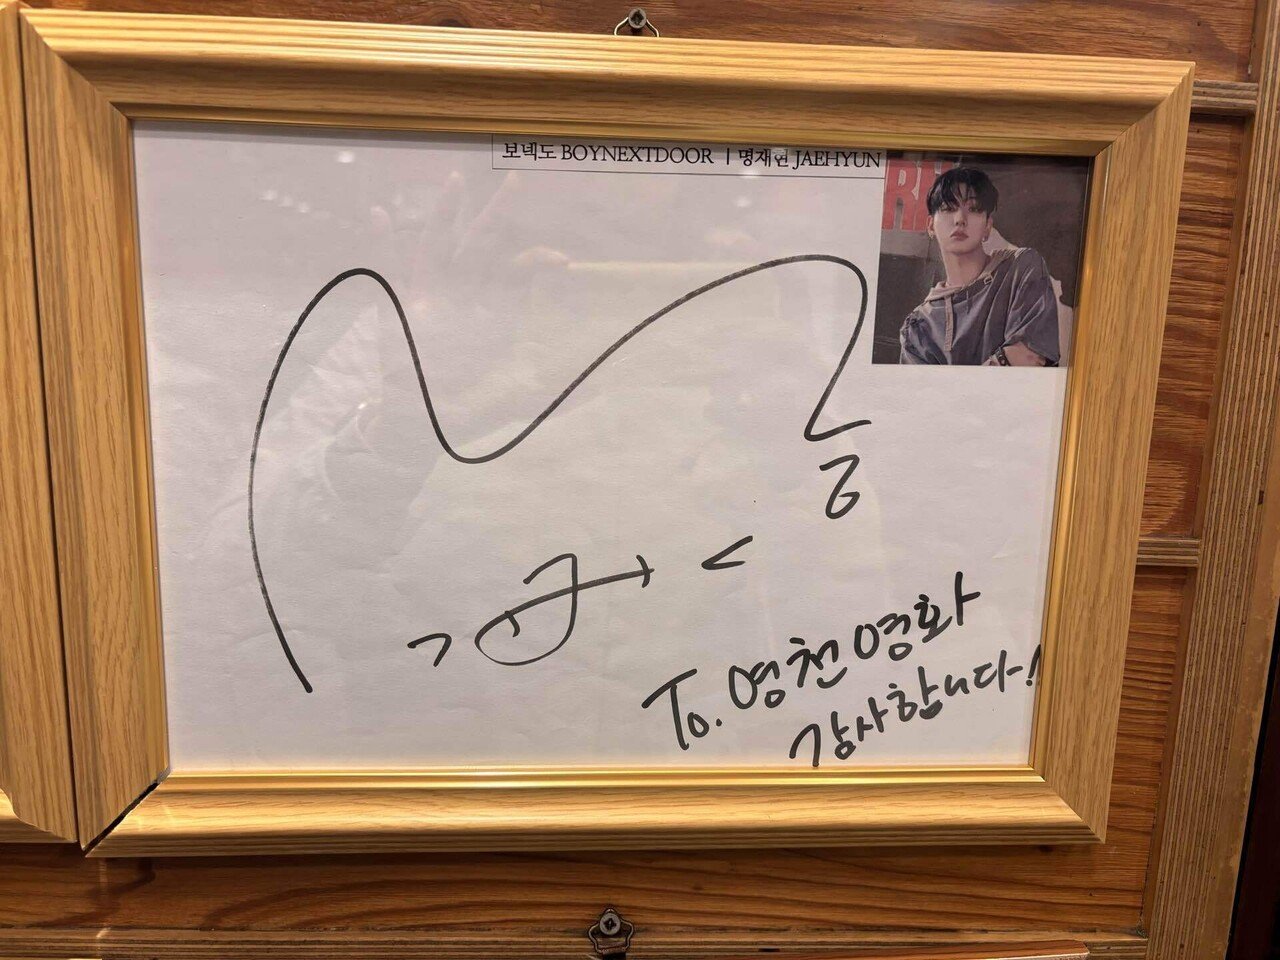 보넥도 BOYNEXTDOOR | 명재현 JAEHYUN
To. 영천영화
감사합니다!